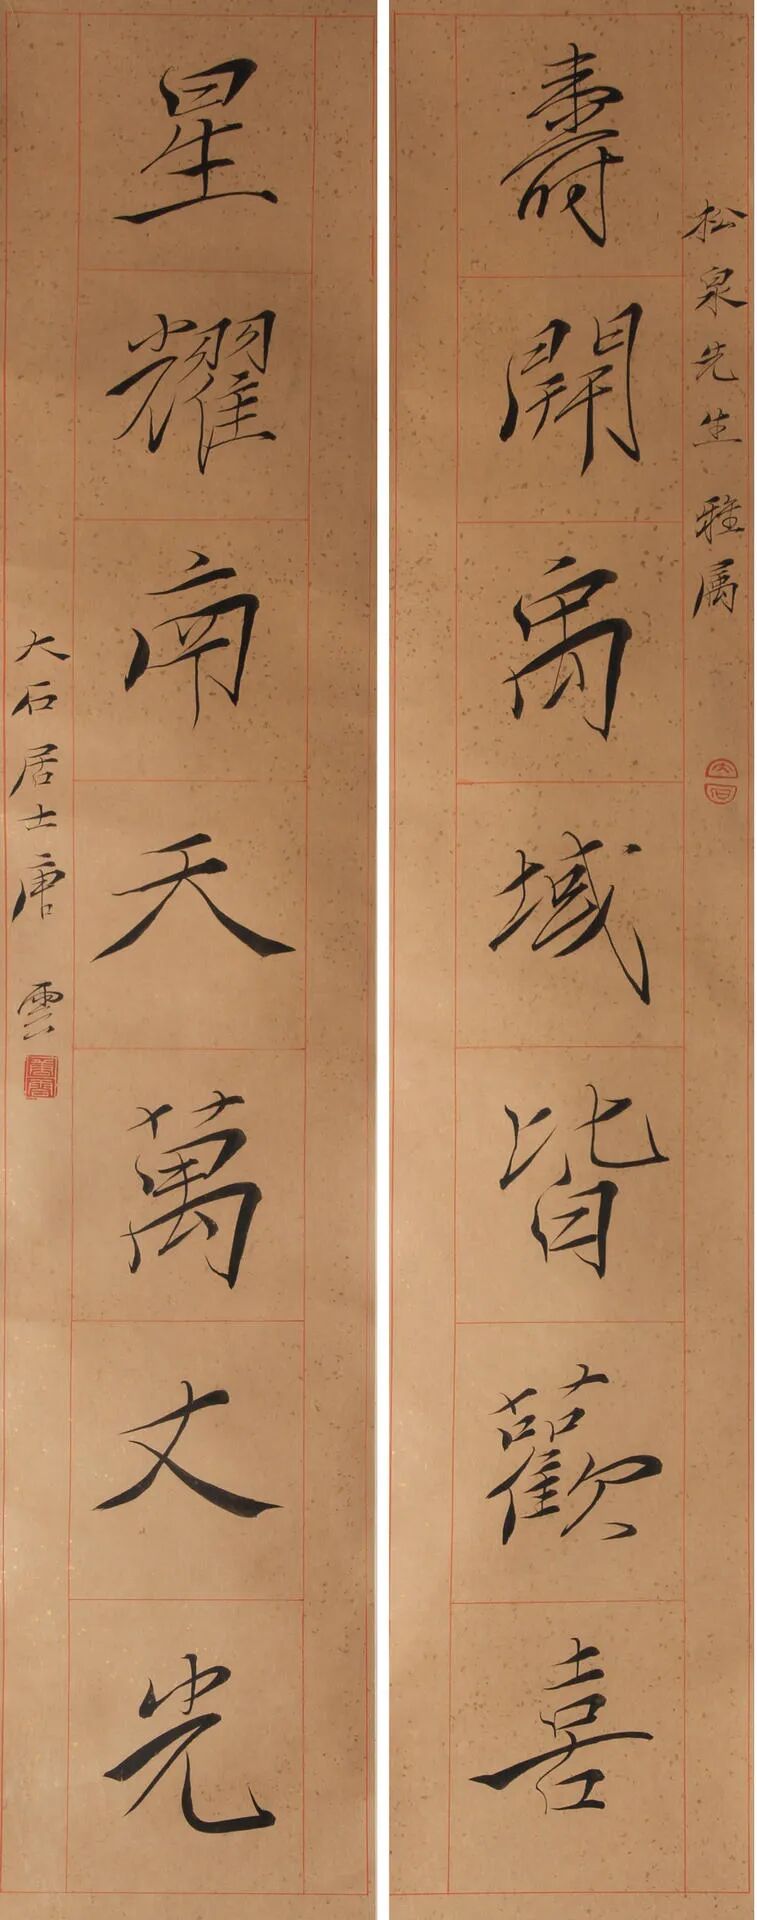 松泉先生 雅属
壽開禹域皆歡喜
星耀南天萬丈光
大石居士唐雲